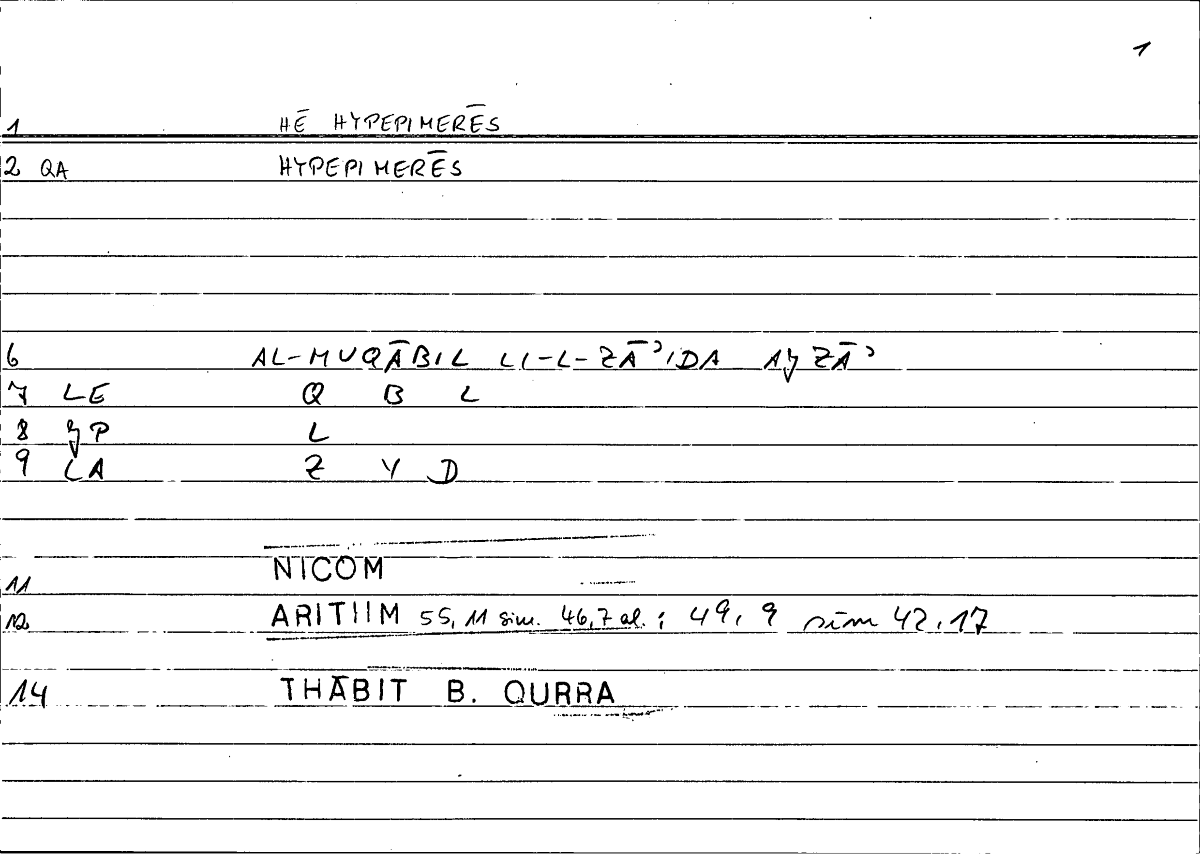 1
1 HĒ HYPEPIMERĒS
2 QA HYPEPIMERĒS
6 AL-MUQĀBIL LI-L-ZĀʾIDA AɈZĀʾ
7 LE Q B L
8 ɈP L
9 LA Z Y D
11 NICOM
12 ARITIIM 55, 11 sim. 46,7 al.; 49, 9 sim 42,17
14 THĀBIT B. QURRA